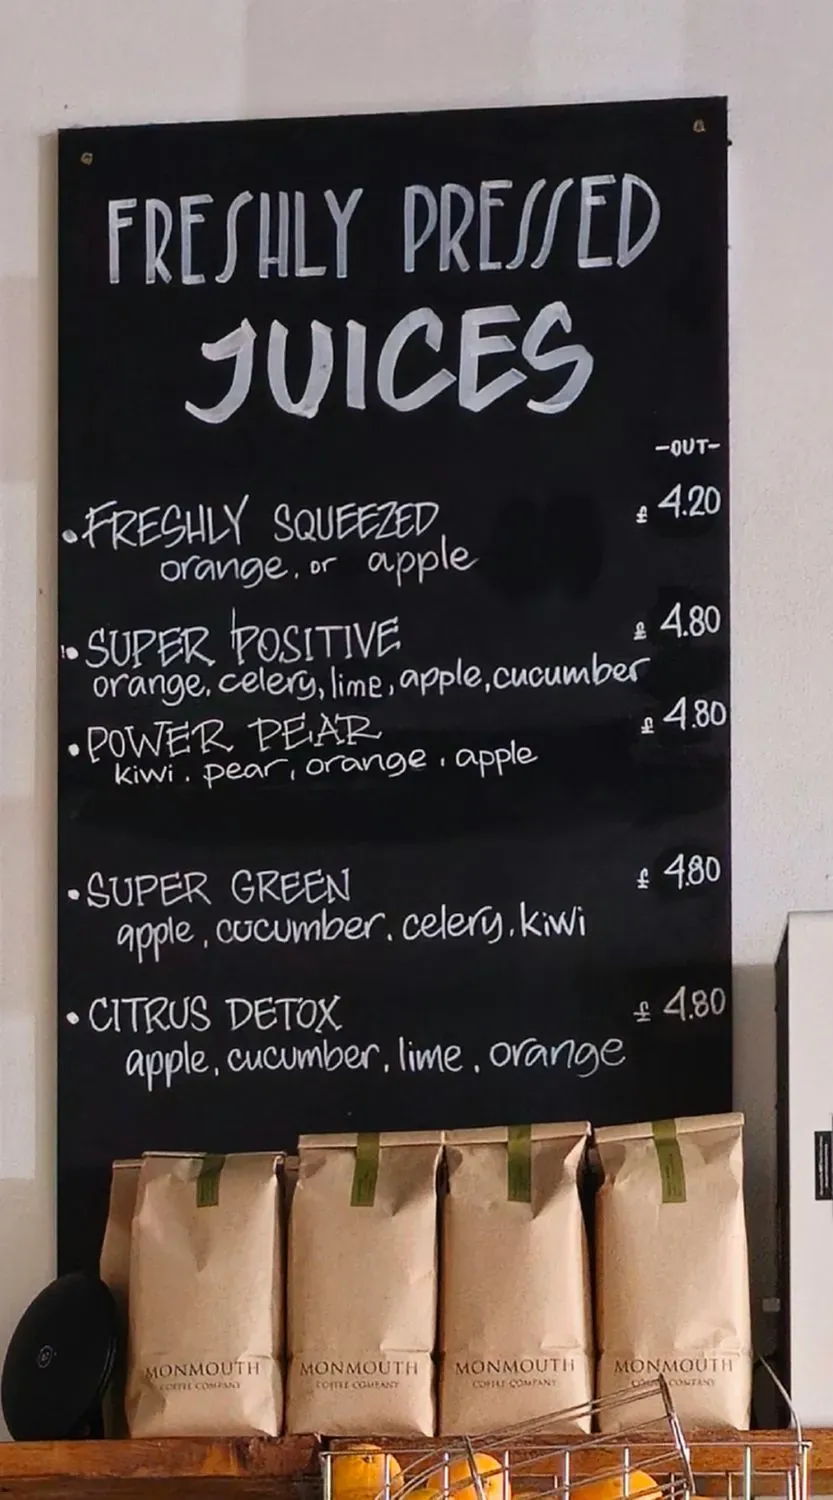 FRESHLY PRESSED
JUICES
-OUT-
• FRESHLY SQUEEZED £ 4.20
orange. or apple
• SUPER POSITIVE £ 4.80
orange, celery, lime, apple, cucumber
• POWER PEAR £ 4.80
kiwi. pear, orange, apple
• SUPER GREEN £ 4.80
apple, cucumber. celery, kiwi
• CITRUS DETOX £ 4.80
apple, cucumber, lime, orange
MONMOUTH MONMOUTH MONMOUTH MONMOUTH
COFFEE COMPANY COFFEE COMPANY COFFEE COMPANY COMPANY